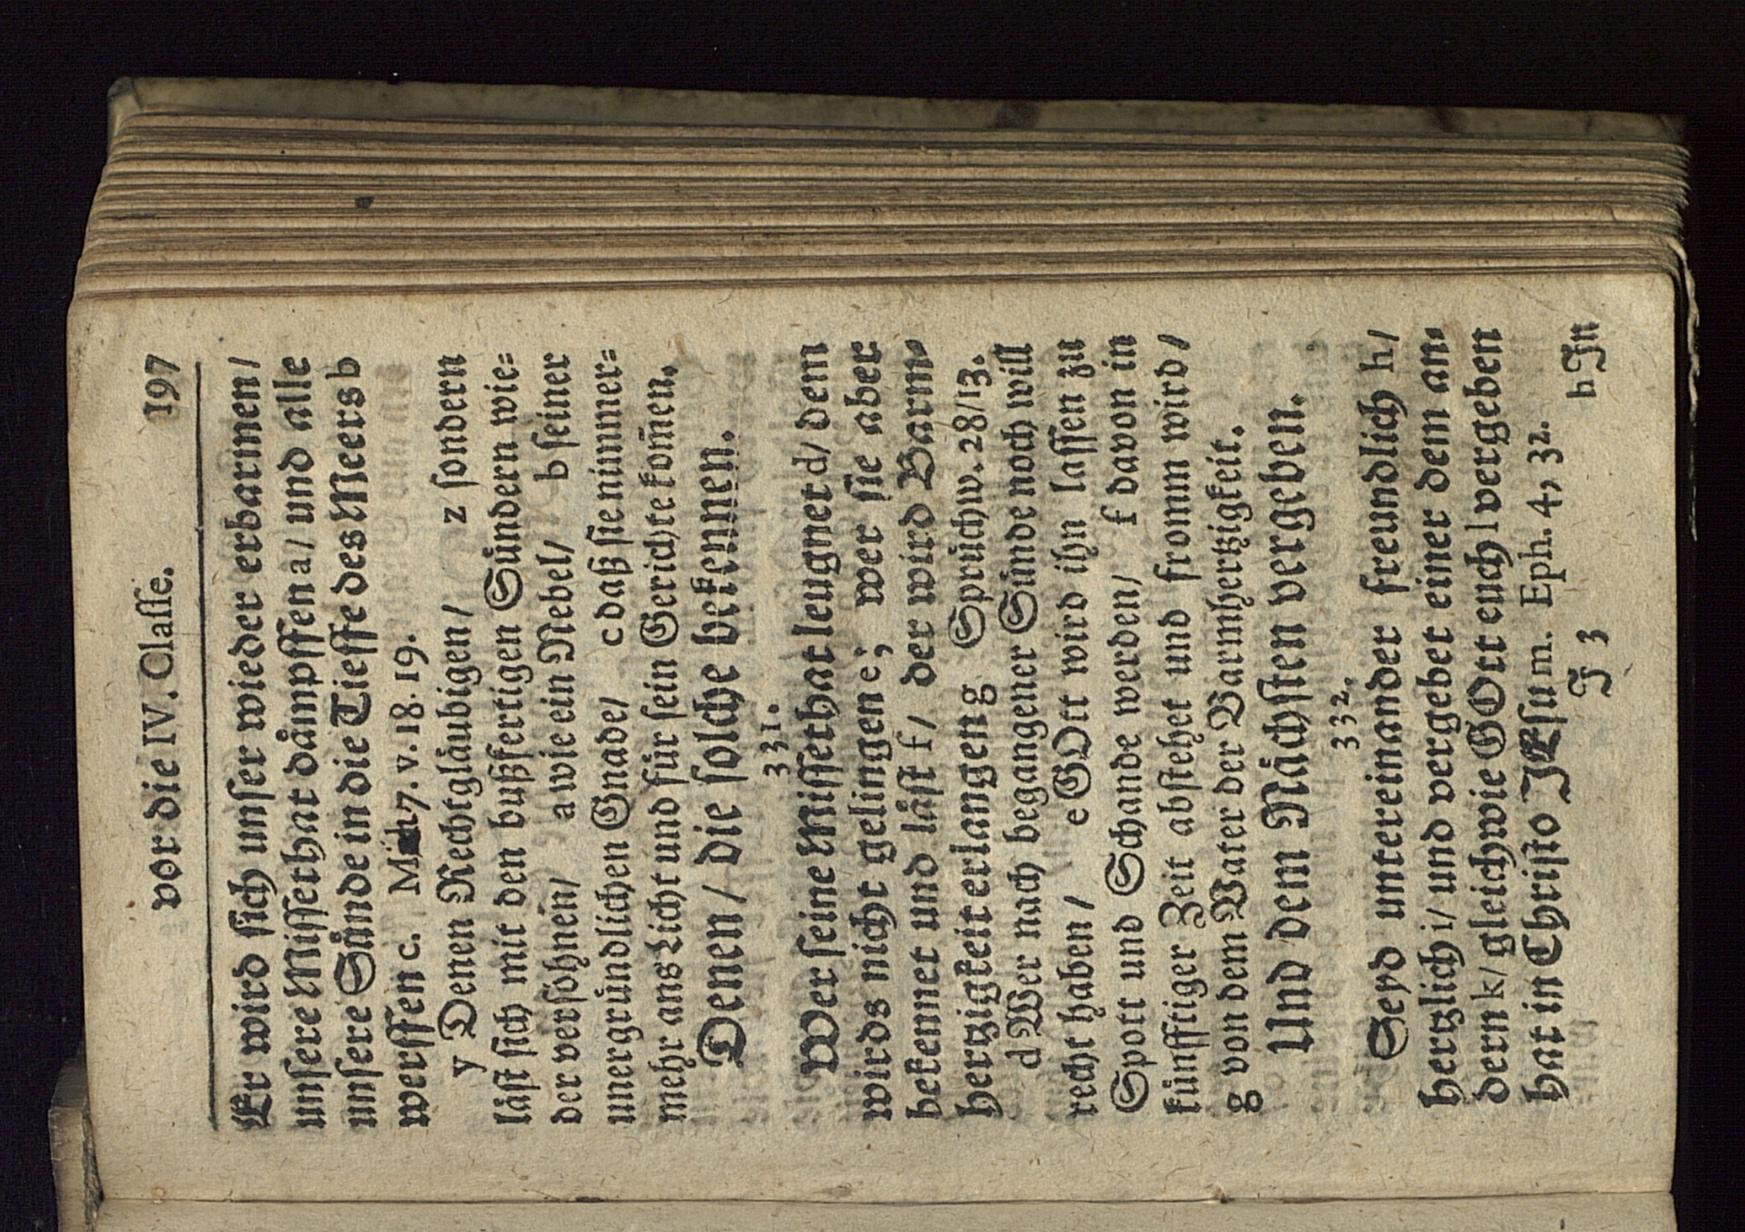 vor die IV. Classe. 197
Er wird sich unser wieder erbarmen/
unsere Missethat dämpffen a/ und alle
unsere Sünde in die Tieffe des Meers b
werffen c. 7. v. 18. 19.
y Denen Rechtgläubigen/ z sondern
läst sich mit den bußfertigen Sündern wie=
der versöhnen/ a wie ein Nebel/ b seiner
unergründlichen Gnade/ c daß sie nimmer=
mehr ans Licht und für sein Gerichte kom̄en.
Denen/ die solche bekennen.
331.
Wer seine Missethat leugnet d/ dem
wirds nicht gelingen e; wer sie aber
bekennet und läst f/ der wird Barm=
hertzigkeit erlangen g Sprüchw. 28/13.
d Wer nach begangener Sünde noch will
recht haben/ e GOtt wird ihn lassen zu
Spott und Schande werden/ f davon in
künfftiger Zeit abstehet und fromm wird/
g von dem Vater der Barmhertzigkeit.
Und dem Nächsten vergeben.
332.
Seyd untereinander freundlich h/
hertzlich i/ und vergebet einer dem an=
dern k/ gleichwie GOtt euch l vergeben
hat in Christo JEsu m. Eph. 4, 32.
J 3 h Jn